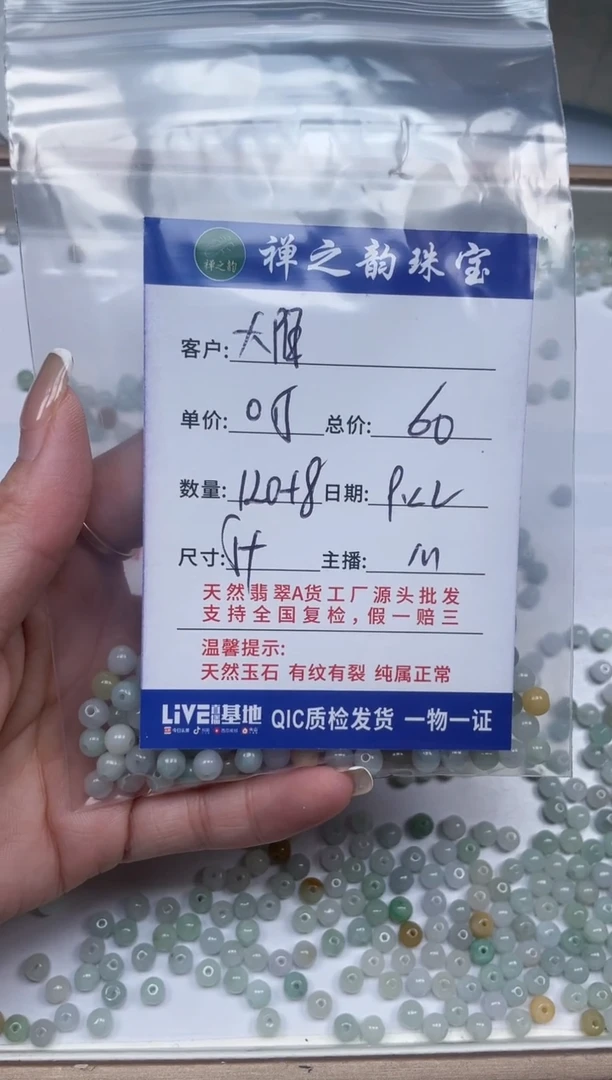 禅之韵 禅之韵珠宝
客户:大
单价: 总价:60
数量:120+8 日期:
尺寸: 主播:m
天然翡翠A货工厂源头批发
支持全国复检,假一赔三
温馨提示:
天然玉石 有纹有裂 纯属正常
LiVE直播基地 QIC质检发货 一物一证